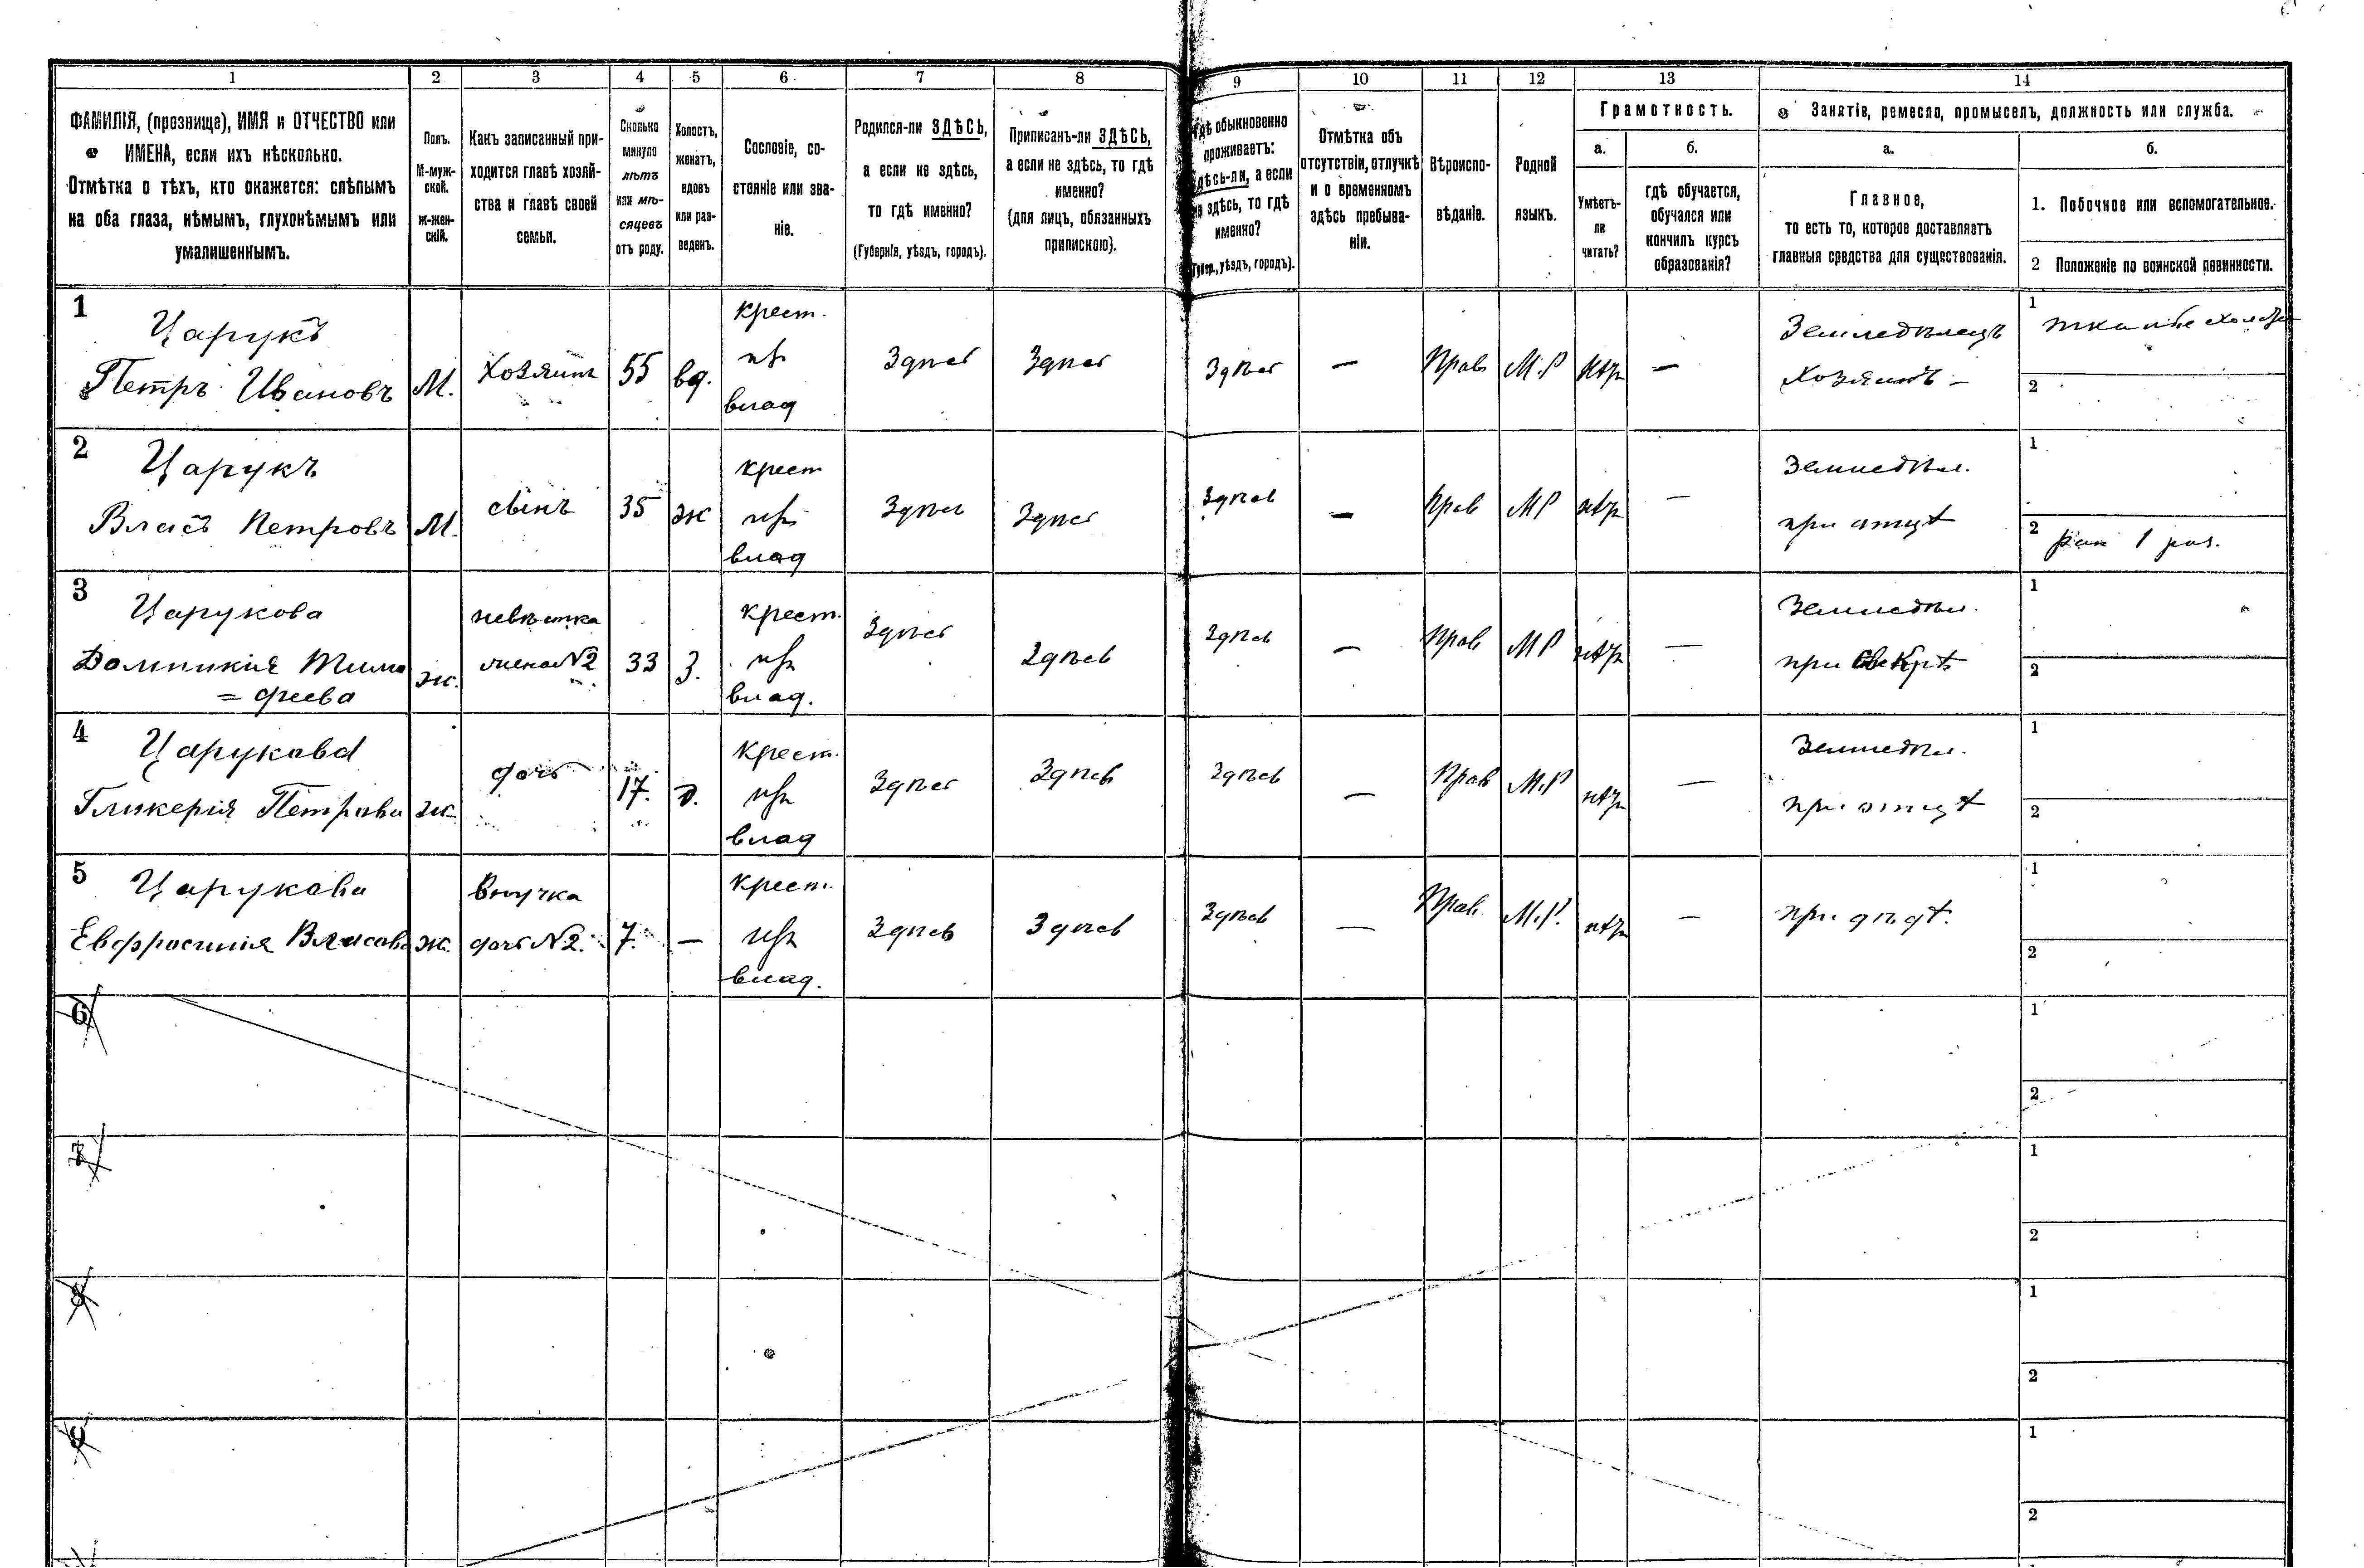 1 2 3 4 5 6 7 8 9 10 11 12 13 14
ФАМИЛІЯ, (прозвище), ИМЯ и ОТЧЕСТВО или
ИМЕНА, если ихъ нѣсколько.
Отмѣтка о тѣхъ, кто окажется: слѣпымъ
на оба глаза, нѣмымъ, глухонѣмымъ или
умалишеннымъ.
Полъ.
М-муж-
ской.
ж-жен-
скій.
Какъ записанный при-
ходится главѣ хозяй-
ства и главѣ своей
семьи.
Сколько
минуло
лѣтъ
или мѣ-
сяцевъ
отъ роду.
Холостъ,
женатъ,
вдовъ
или раз-
веденъ.
Сословіе, со-
стояніе или зва-
ніе.
Родился-ли ЗДѢСЬ,
а если не здѣсь,
то гдѣ именно?
(Губернія, уѣздъ, городъ).
Приписанъ-ли ЗДѢСЬ,
а если не здѣсь, то гдѣ
именно?
(для лицъ, обязанныхъ
припискою).
Гдѣ обыкновенно
проживаетъ:
здѣсь-ли, а если
не здѣсь, то гдѣ
именно?
(Губер., уѣздъ, городъ).
Отмѣтка объ
отсутствіи, отлучкѣ
и о временномъ
здѣсь пребыва-
ніи.
Вѣроиспо-
вѣданіе.
Родной
языкъ.
Грамотность.
а.
Умѣетъ-
ли
читать?
б.
гдѣ обучается,
обучался или
кончилъ курсъ
образованія?
Занятіе, ремесло, промыселъ, должность или служба.
а.
Главное,
то есть то, которое доставляетъ
главныя средства для существованія.
б.
1. Побочное или вспомогательное.
2 Положеніе по воинской повинности.
1
Царукъ
Петръ Ивановъ
М.
Хозяинъ
55
вд.
крест.
влад
Здѣсь
Здѣсь
Здѣсь
—
Прав
М.Р
нѣт
—
Земледѣлецъ
Хозяинъ —
1
2
2
Царукъ
Власъ Петровъ
М.
сынъ
35
ж
крест
влад
Здѣсь
Здѣсь
Здѣсь
—
Прав
МР
нѣт
—
Земледѣл.
при отцѣ
1
2 1 раз.
3
Царукова
Домникія Тимо
= феева
ж.
невѣстка
жена №2
33
З.
крест.
влад.
Здѣсь
Здѣсь
Здѣсь
—
Прав
МР
нѣт
—
Земледѣл.
при свекрѣ
1
2
4
Царукова
Гликерія Петрова
ж.
дочь
17.
д.
крест.
влад
Здѣсь
Здѣсь
Здѣсь
—
Прав
М.Р
нѣт
—
Земледѣл.
при отцѣ
1
2
5
Царукова
Евфросинія Власова
ж.
внучка
дочь №2.
7.
—
крест.
влад.
Здѣсь
Здѣсь
Здѣсь
—
Прав.
М.Р.
нѣт
—
при дѣдѣ.
1
2
6
1
2
7
1
2
8
1
2
9
1
2